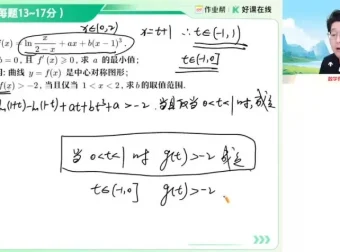 每题13~17分)
作业帮 | 好课在线
x∈(0,2)
x=t+1 ∴ t∈(-1,1)
f(x) = ln x/(2-x) + ax + b(x-1)³.
t∈(-1,0]
b=0, 且 f'(x)≥0, 求 a 的最小值;
明: 曲线 y=f(x) 是中心对称图形;
f(x)>-2, 当且仅当 1<x<2, 求 b 的取值范围.
ln(1+t)-ln(1-t)+at+bt³+a>-2. 当且仅当 0<t<1 时, 成立
当 0<t<1 时 g(t)>-2 成立
t∈(-1,0] g(t)>-2